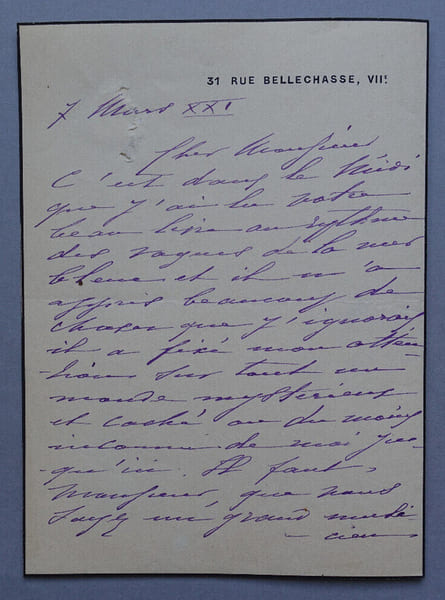 31 RUE BELLECHASSE, VIIᵉ
7 Mars XXI
Cher Monsieur
C'est dans le Midi
que j'ai lu votre
beau livre au rythme
des vagues de la mer
bleue et il m'a
appris beaucoup de
choses que j'ignorais
il a fixé mon atten-
-tion sur tout un
monde mystérieux
et caché ou du moins
inconnu de moi jus-
-qu'ici. Il faut,
Monsieur, que vous
soyez un grand musi-
-cien